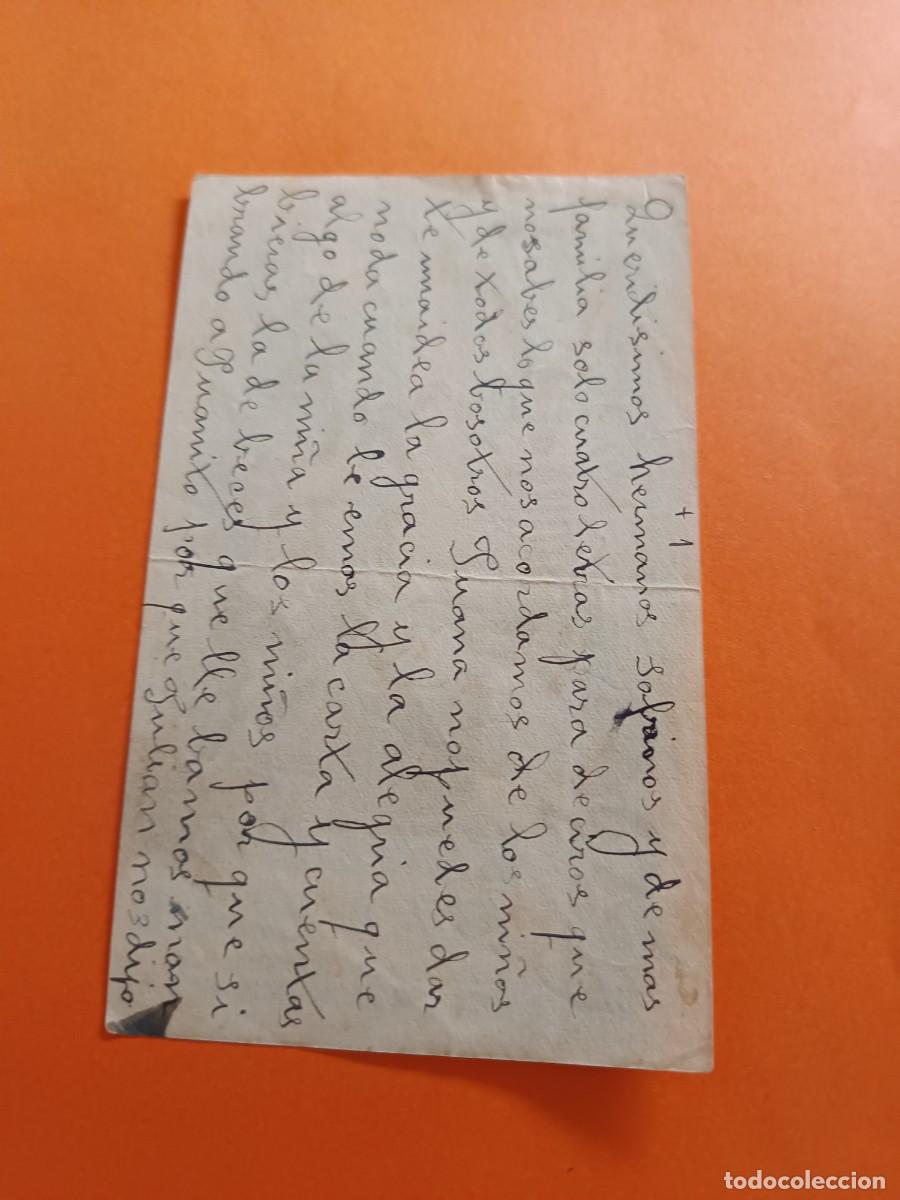 + 1
Queridisimos hermanos sobrinos y demas
familia solo cuatro letras para deciros que
nosabes lo que nos acordamos de los niños
y de todos bosotros Juana nopuedes dar
te unaidea la gracia y la alegria que
noda cuando leemos la carta y cuentas
algo de la niña y los niños por que si
bieras la de beces que lle bamos nom
brando a Juanito por que Julian nosdijo
todocoleccion